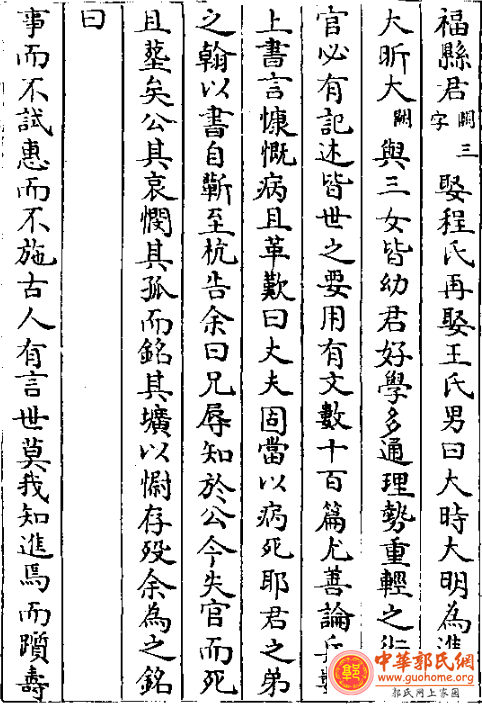 福縣君闕三字娶程氏再娶王氏男曰大時大明為進
大昕大闕與三女皆幼君好學多通理勢重輕之術
官必有記述皆世之要用有文數十百篇尤善論兵數
上書言慷慨病且革歎曰丈夫固當以病死耶君之弟
之翰以書自蘄至杭告余曰兄辱知於公今失官而死
且塟矣公其哀憫其孤而銘其壙以慰存歿余為之銘
曰
事而不試惠而不施古人有言世莫我知進焉而躓壽
中華郭氏網
www.guohome.org
郭氏网上家園